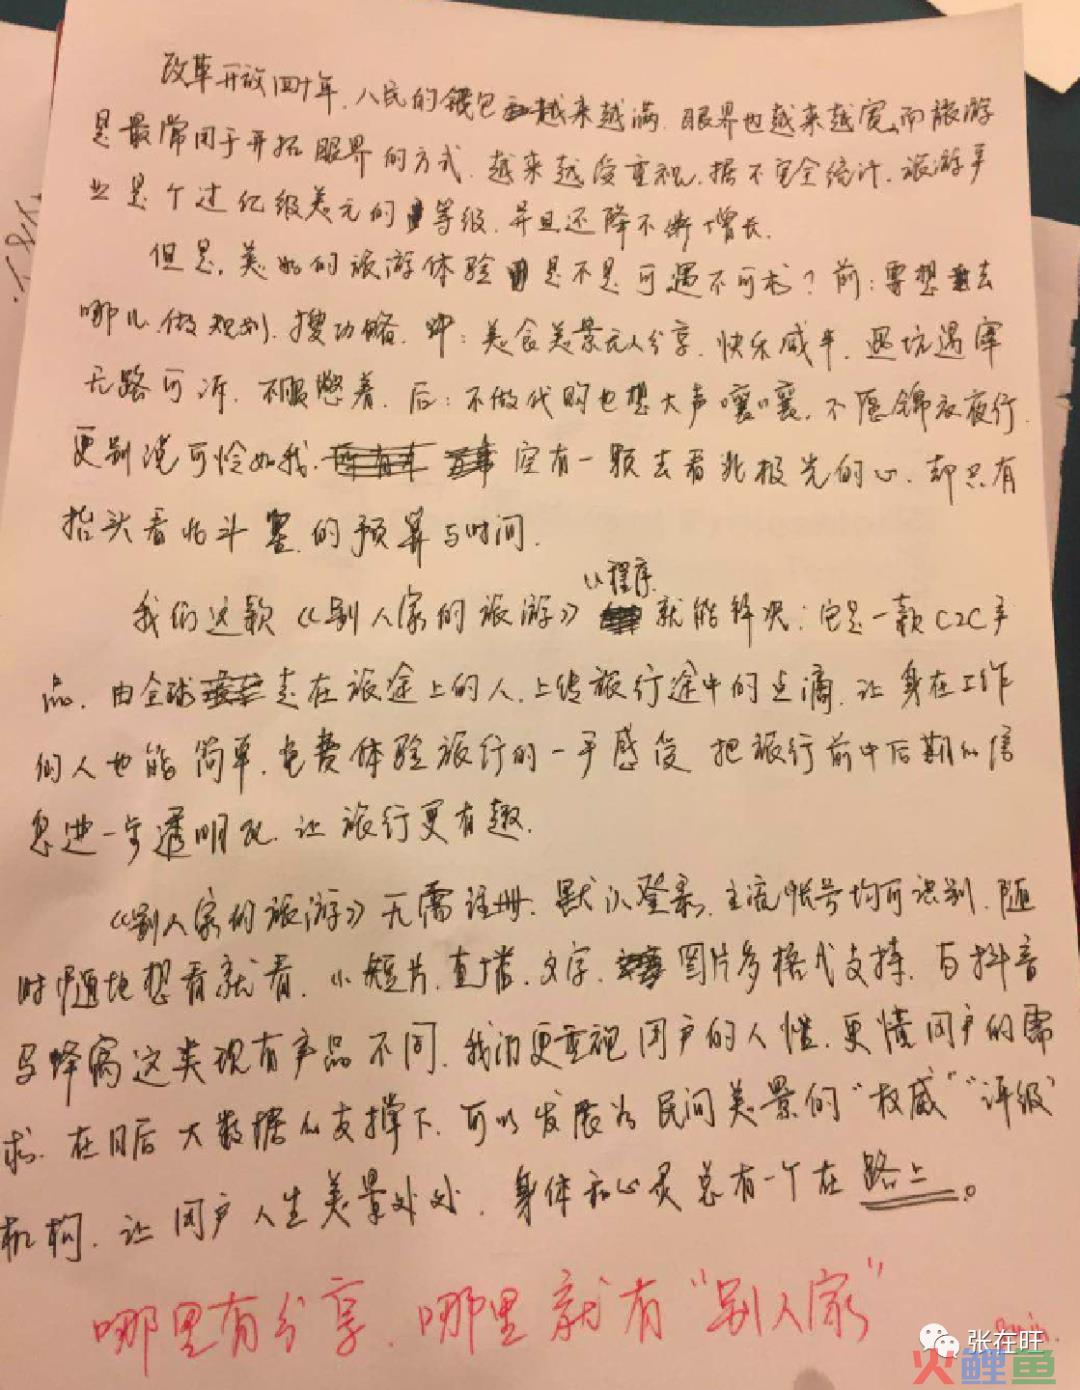 改革开放四十年，人民的钱包越来越满，眼界也越来越宽，而旅游
是最常用于开拓眼界的方式，越来越受重视，据不完全统计，旅游产
业是个过亿级美元的等级，并且还降不断增长。
但是，美好的旅游体验是不是可遇不可求？前：要想去
哪儿，做规划，搜功略，中：美食美景无人分享，快乐减半，遇坑遇宰
无路可诉，不服憋着，后：不做代购也想大声嚷嚷，不愿锦衣夜行，
更别说可怜如我，空有一颗去看北极光的心，却只有
抬头看北斗星的预算与时间。
小程序
我们这款《别人家的旅游》就能解决：它是一款C2C产
品，由全球走在旅途上的人，上传旅行途中的点滴，让身在工作
的人也能简单，免费体验旅行的一手感受，把旅行前中后期的信
息进一步透明化，让旅行更有趣。
《别人家的旅游》无需注册，默认登录，主流帐号均可识别，随
时随地想看就看，小短片，直播，文字，图片多格式支持，与抖音
马蜂窝这类现有产品不同，我们更重视用户的人性，更懂用户的需
求，在日后大数据的支撑下，可以发展为民间美景的“权威”“评级”
机构，让用户人生美景处处，身体和心灵总有一个在路上。
哪里有分享，哪里就有“别人家”
张在旺
火鲤鱼